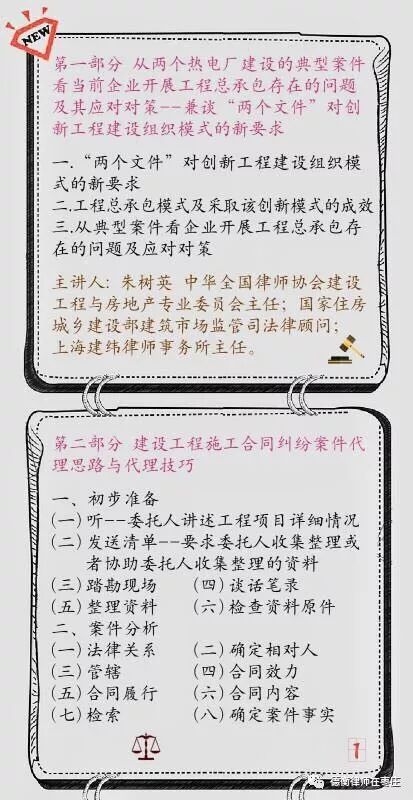 NEW
第一部分 从两个热电厂建设的典型案件
看当前企业开展工程总承包存在的问题
及其应对对策--兼谈“两个文件”对创
新工程建设组织模式的新要求
一.“两个文件”对创新工程建设组织模
式的新要求
二.工程总承包模式及采取该创新模式的成效
三.从典型案件看企业开展工程总承包存
在的问题及应对对策
主讲人：朱树英 中华全国律师协会建设
工程与房地产专业委员会主任；国家住房
城乡建设部建筑市场监管司法律顾问；
上海建纬律师事务所主任。
第二部分 建设工程施工合同纠纷案件代
理思路与代理技巧
一、初步准备
(一)听--委托人讲述工程项目详细情况
(二)发送清单--要求委托人收集整理或
者协助委托人收集整理的资料
(三)踏勘现场 (四)谈话笔录
(五)整理资料 (六)检查资料原件
二、案件分析
(一)法律关系 (二)确定相对人
(三)管辖 (四)合同效力
(五)合同履行 (六)合同内容
(七)检索 (八)确定案件事实
1
德衡律师在枣庄